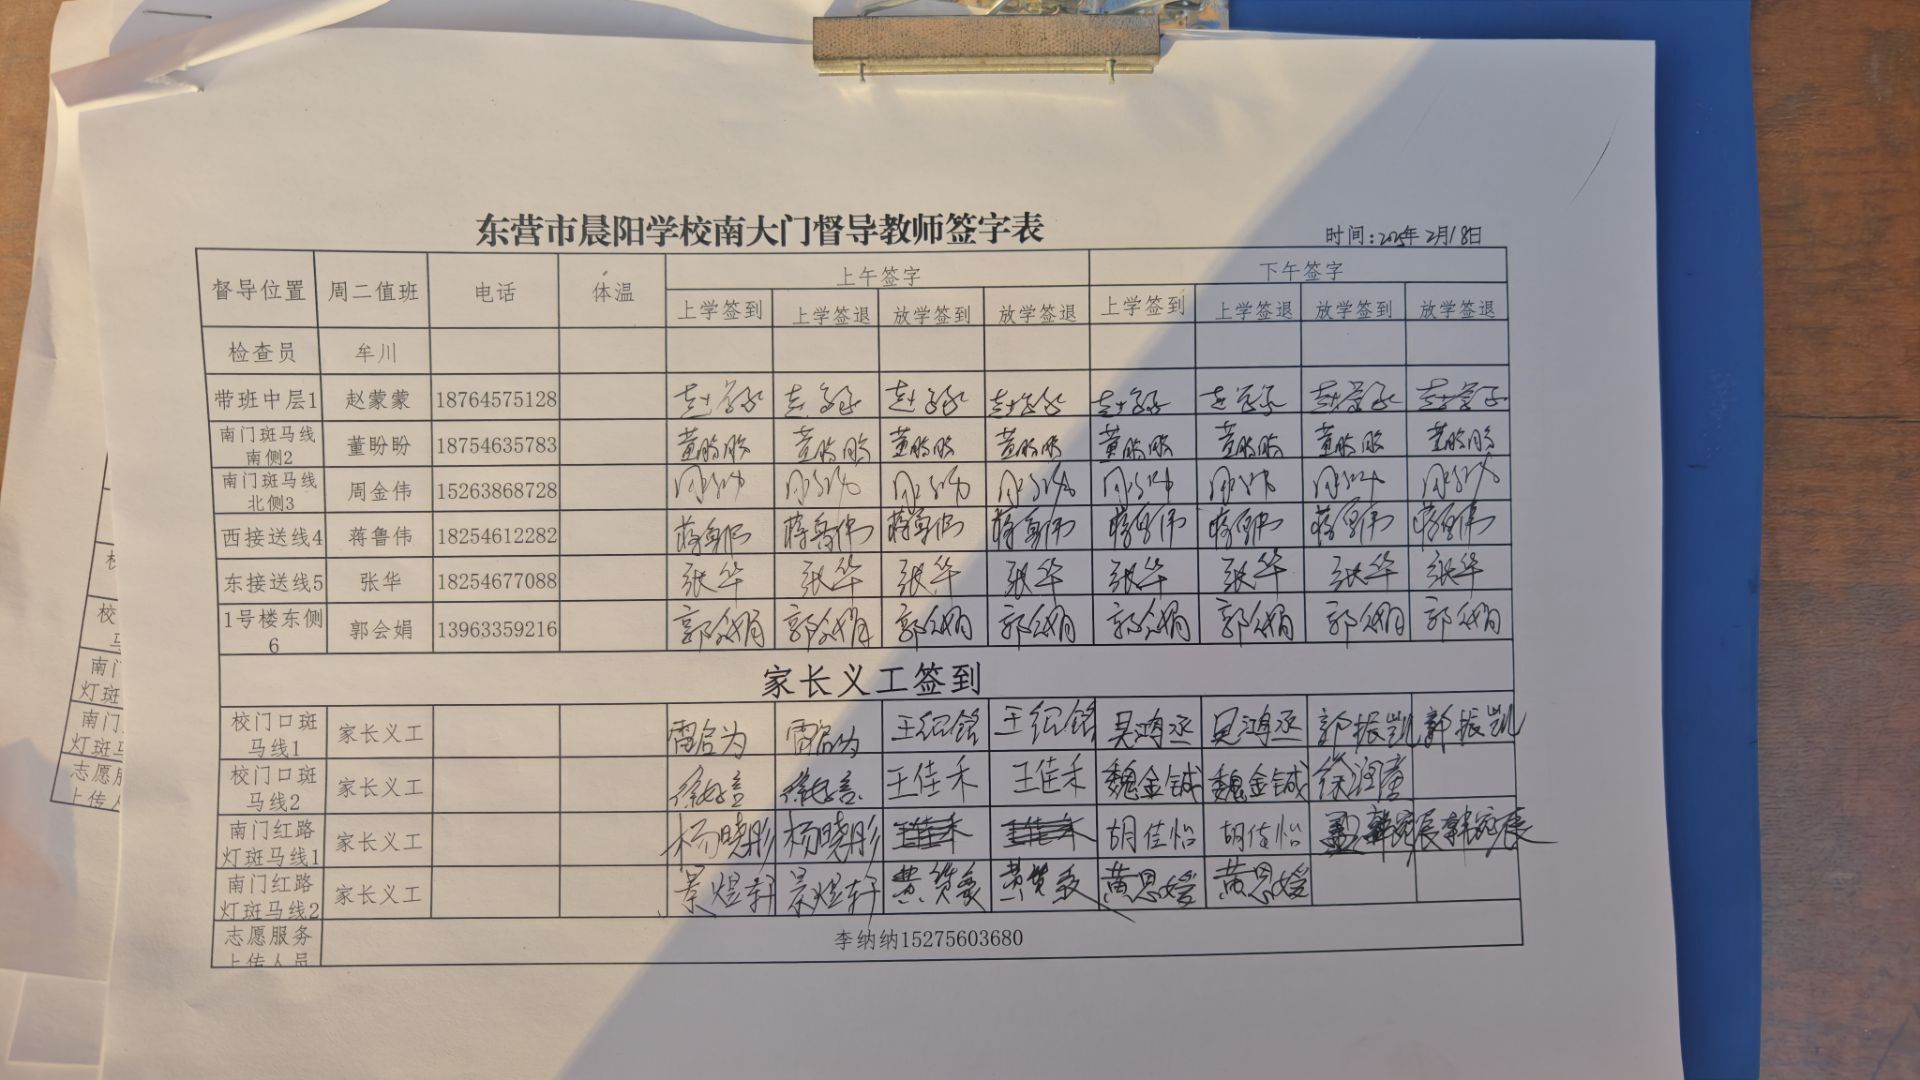 东营市晨阳学校南大门督导教师签字表
时间:2025年2月18日
督导位置 周二值班 电话 体温 上午签字 下午签字
上学签到 上学签退 放学签到 放学签退 上学签到 上学签退 放学签到 放学签退
检查员 牟川
带班中层1 赵蒙蒙 18764575128
南门斑马线
南侧2 董盼盼 18754635783 董盼盼 董盼盼 董盼盼 董盼盼 董盼盼 董盼盼 董盼盼 董盼盼
南门斑马线
北侧3 周金伟 15263868728
西接送线4 蒋鲁伟 18254612282 蒋鲁伟 蒋鲁伟 蒋鲁伟 蒋鲁伟 蒋鲁伟 蒋鲁伟 蒋鲁伟 蒋鲁伟
东接送线5 张华 18254677088 张华 张华 张华 张华 张华 张华 张华 张华
1号楼东侧
6 郭会娟 13963359216 郭会娟 郭会娟 郭会娟 郭会娟 郭会娟 郭会娟 郭会娟 郭会娟
家长义工签到
校门口斑
马线1 家长义工 雷启为 雷启为 王纪铭 王纪铭 吴鸿丞 吴鸿丞 郭振凯 郭振凯
校门口斑
马线2 家长义工 王佳禾 王佳禾 魏金铖 魏金铖 徐润童
南门红路
灯斑马线1 家长义工 杨晓彤 杨晓彤 胡佳怡 胡佳怡
南门红路
灯斑马线2 家长义工 景煜轩 景煜轩 黄恩媛 黄恩媛
志愿服务
上传人员 李纳纳15275603680